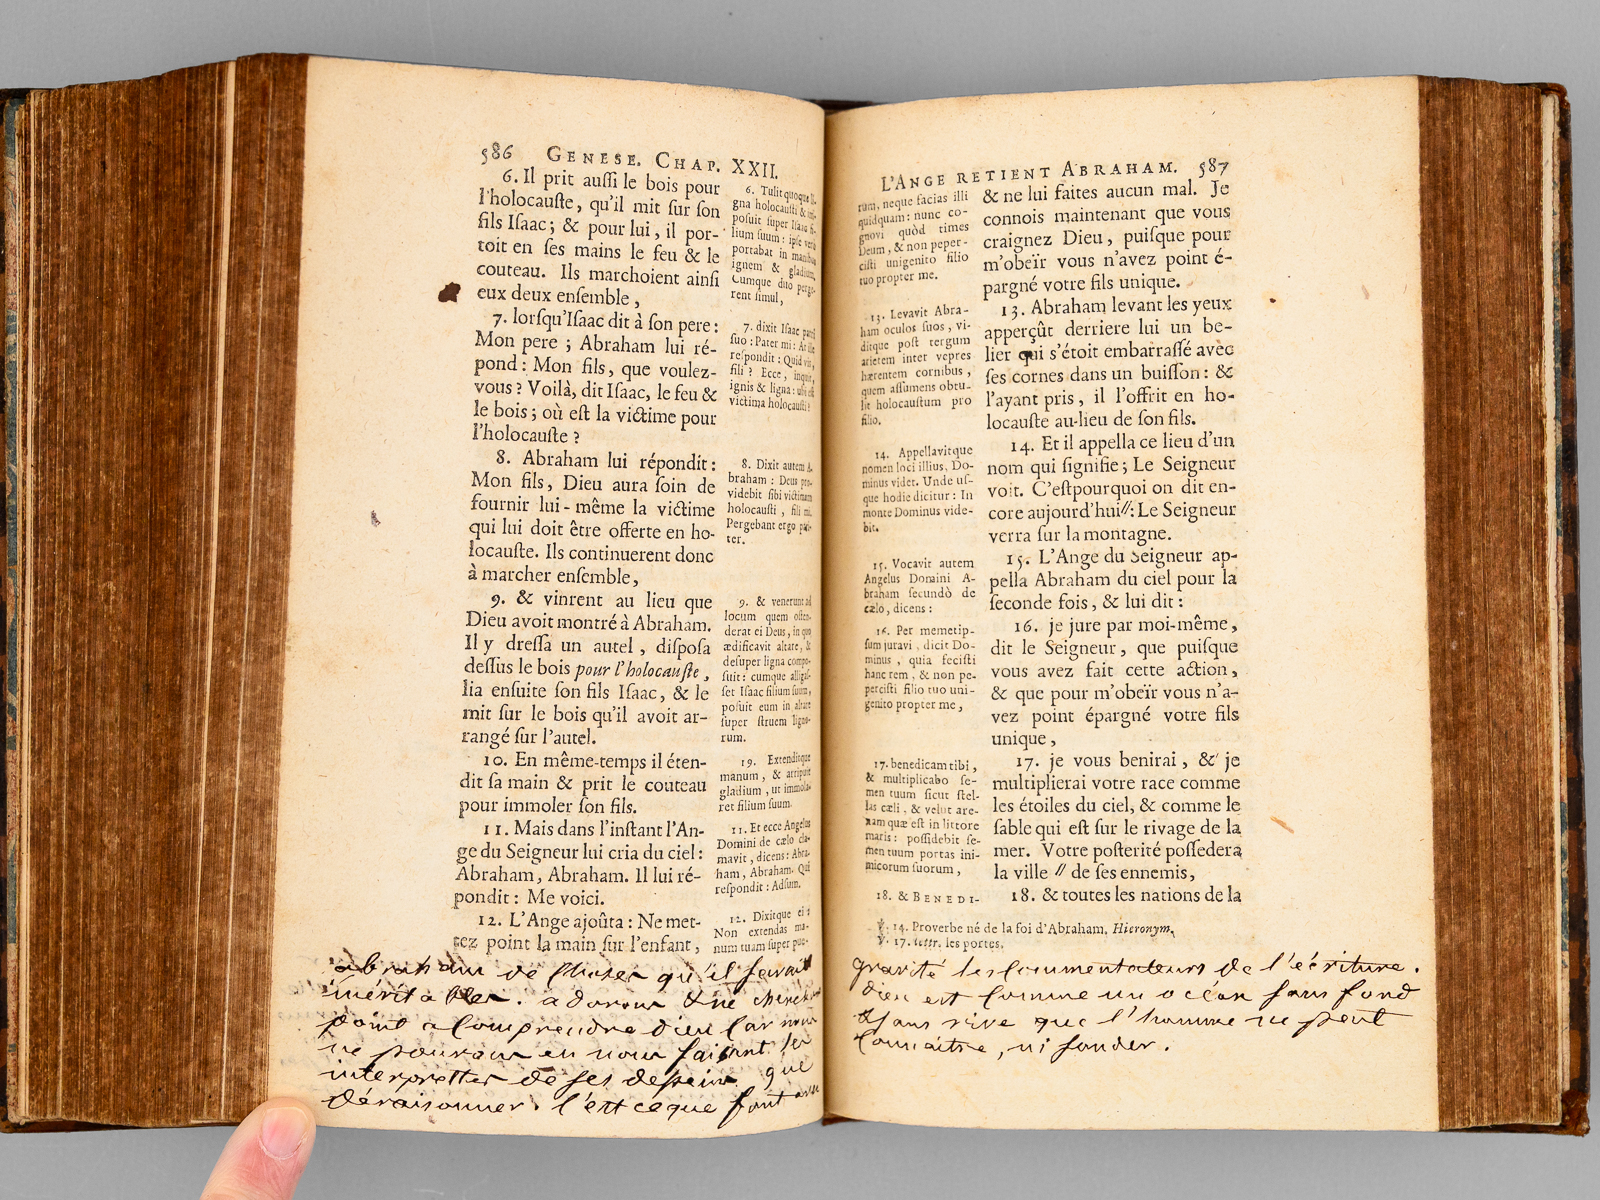 586 GENESE. CHAP. XXII.
6. Il prit auſſi le bois pour
l'holocauſte, qu'il mit ſur ſon
fils Iſaac; & pour lui, il por-
toit en ſes mains le feu & le
couteau. Ils marchoient ainſi
eux deux enſemble,
7. lorſqu'Iſaac dit à ſon pere:
Mon pere; Abraham lui ré-
pond: Mon fils, que voulez-
vous? Voilà, dit Iſaac, le feu &
le bois; où eſt la victime pour
l'holocauſte?
8. Abraham lui répondit:
Mon fils, Dieu aura ſoin de
fournir lui-même la victime
qui lui doit être offerte en ho-
locauſte. Ils continuerent donc
à marcher enſemble,
9. & vinrent au lieu que
Dieu avoit montré à Abraham.
Il y dreſſa un autel, diſpoſa
deſſus le bois pour l'holocauſte,
lia enſuite ſon fils Iſaac, & le
mit ſur le bois qu'il avoit ar-
rangé ſur l'autel.
10. En même-temps il éten-
dit ſa main & prit le couteau
pour immoler ſon fils.
11. Mais dans l'inſtant l'An-
ge du Seigneur lui cria du ciel:
Abraham, Abraham. Il lui ré-
pondit: Me voici.
12. L'Ange ajoûta: Ne met-
tez point la main ſur l'enfant,
6. Tulit quoque
gna holocauſti &
poſuit ſuper Iſaac
lium ſuum: ipſe
portabat in
ignem &
Cumque duo perge-
rent ſimul,
7. dixit Iſaac
ſuo: Pater mi:
reſpondit: Quid
fili? Ecce,
ignis & ligna:
victima holocauſti?
8. Dixit autem A-
braham: Deus pro-
videbit ſibi victimam
holocauſti, fili mi.
Pergebant ergo
ter.
9. & venerunt ad
locum quem oſten-
derat ei Deus, in quo
ædificavit altare, &
deſuper ligna compo-
ſuit: cumque alligaſ-
ſet Iſaac filium ſuum,
poſuit eum in altare
ſuper ſtruem ligno-
rum.
19. Extenditque
manum, & arripuit
gladium, ut immola-
ret filium ſuum.
11. Et ecce Angelus
Domini de cælo cla-
mavit, dicens: Abra-
ham, Abraham. Qui
reſpondit: Adſum.
12. Dixitque ei:
Non extendas ma-
num tuam ſuper pue-
abraham de choses qu'il savait
inéritables. adorons & ne
point a comprendre dieu car nous
ne pouvons en nous faisant les
interpretter de ses desseins que
déraisonner. c'est ce que font avec
L'ANGE RETIENT ABRAHAM. 587
rum, neque facias illi
quidquam: nunc co-
gnovi quòd times
Deum, & non peper-
ciſti unigenito filio
tuo propter me.
13. Levavit Abra-
ham oculos ſuos, vi-
ditque poſt tergum
arietem inter vepres
hærentem cornibus,
quem aſſumens obtu-
lit holocauſtum pro
filio.
14. Appellavitque
nomen loci illius, Do-
minus videt. Unde uſ-
que hodie dicitur: In
monte Dominus vide-
bit.
15. Vocavit autem
Angelus Domini A-
braham ſecundò de
cælo, dicens:
16. Per memetip-
ſum juravi, dicit Do-
minus, quia feciſti
hanc rem, & non pe-
perciſti filio tuo uni-
genito propter me,
17. benedicam tibi,
& multiplicabo ſe-
men tuum ſicut ſtel-
las cæli, & velut are-
nam quæ eſt in littore
maris: poſſidebit ſe-
men tuum portas ini-
micorum ſuorum,
18. & BENEDI-
& ne lui faites aucun mal. Je
connois maintenant que vous
craignez Dieu, puiſque pour
m'obeïr vous n'avez point é-
pargné votre fils unique.
13. Abraham levant les yeux
apperçût derriere lui un be-
lier qui s'étoit embarraſſé avec
ſes cornes dans un buiſſon: &
l'ayant pris, il l'offrit en ho-
locauſte au-lieu de ſon fils.
14. Et il appella ce lieu d'un
nom qui ſignifie; Le Seigneur
voit. C'eſtpourquoi on dit en-
core aujourd'hui//: Le Seigneur
verra ſur la montagne.
15. L'Ange du Seigneur ap-
pella Abraham du ciel pour la
ſeconde fois, & lui dit:
16. je jure par moi-même,
dit le Seigneur, que puiſque
vous avez fait cette action,
& que pour m'obeïr vous n'a-
vez point épargné votre fils
unique,
17. je vous benirai, & je
multiplierai votre race comme
les étoiles du ciel, & comme le
ſable qui eſt ſur le rivage de la
mer. Votre poſterité poſſedera
la ville // de ſes ennemis,
18. & toutes les nations de la
℣. 14. Proverbe né de la foi d'Abraham, Hieronym.
℣. 17. lettr. les portes.
gravité les commentateurs de l'écriture.
dieu est comme un océan sans fond
& sans rive que l'homme ne peut
connaitre, ni sonder.